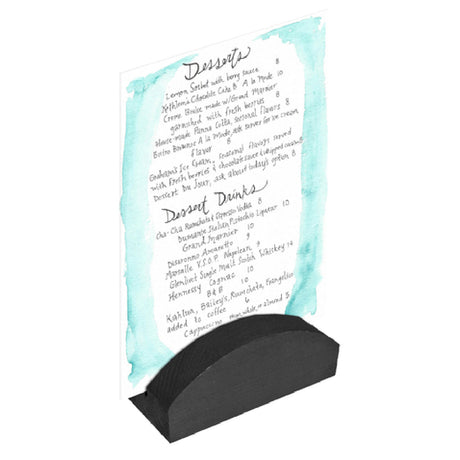 Desserts
Lemon Sorbet with berry sauce 8
Kathleen's Chocolate Cake 8 A la Mode 10
Creme Brulee made w/Grand Marnier
garnished with fresh berries 8
House-made Panna Cotta, seasonal flavors 8
A la Mode, ask server for ice cream
flavor 8
Graham's Ice Cream, seasonal flavors served
with fresh berries & chocolate sauce & whipped cream 8
Dessert Du Jour, ask about today's option 8
Dessert Drinks
Cha-Cha Rumchata & Espresso Vodka 8
Dumante Italian Pistachio Liqueur 10
Grand Marnier 10
Disaronno Amaretto 9
Marsalle V.S.O.P. Napolean 9
Glenlivet Single Malt Scotch Whiskey 14
Hennessy Cognac 10
B&B 10
Kahlua, Bailey's, Rumchata, Frangelico
added to coffee 6
Cappuccino whole or almond 5